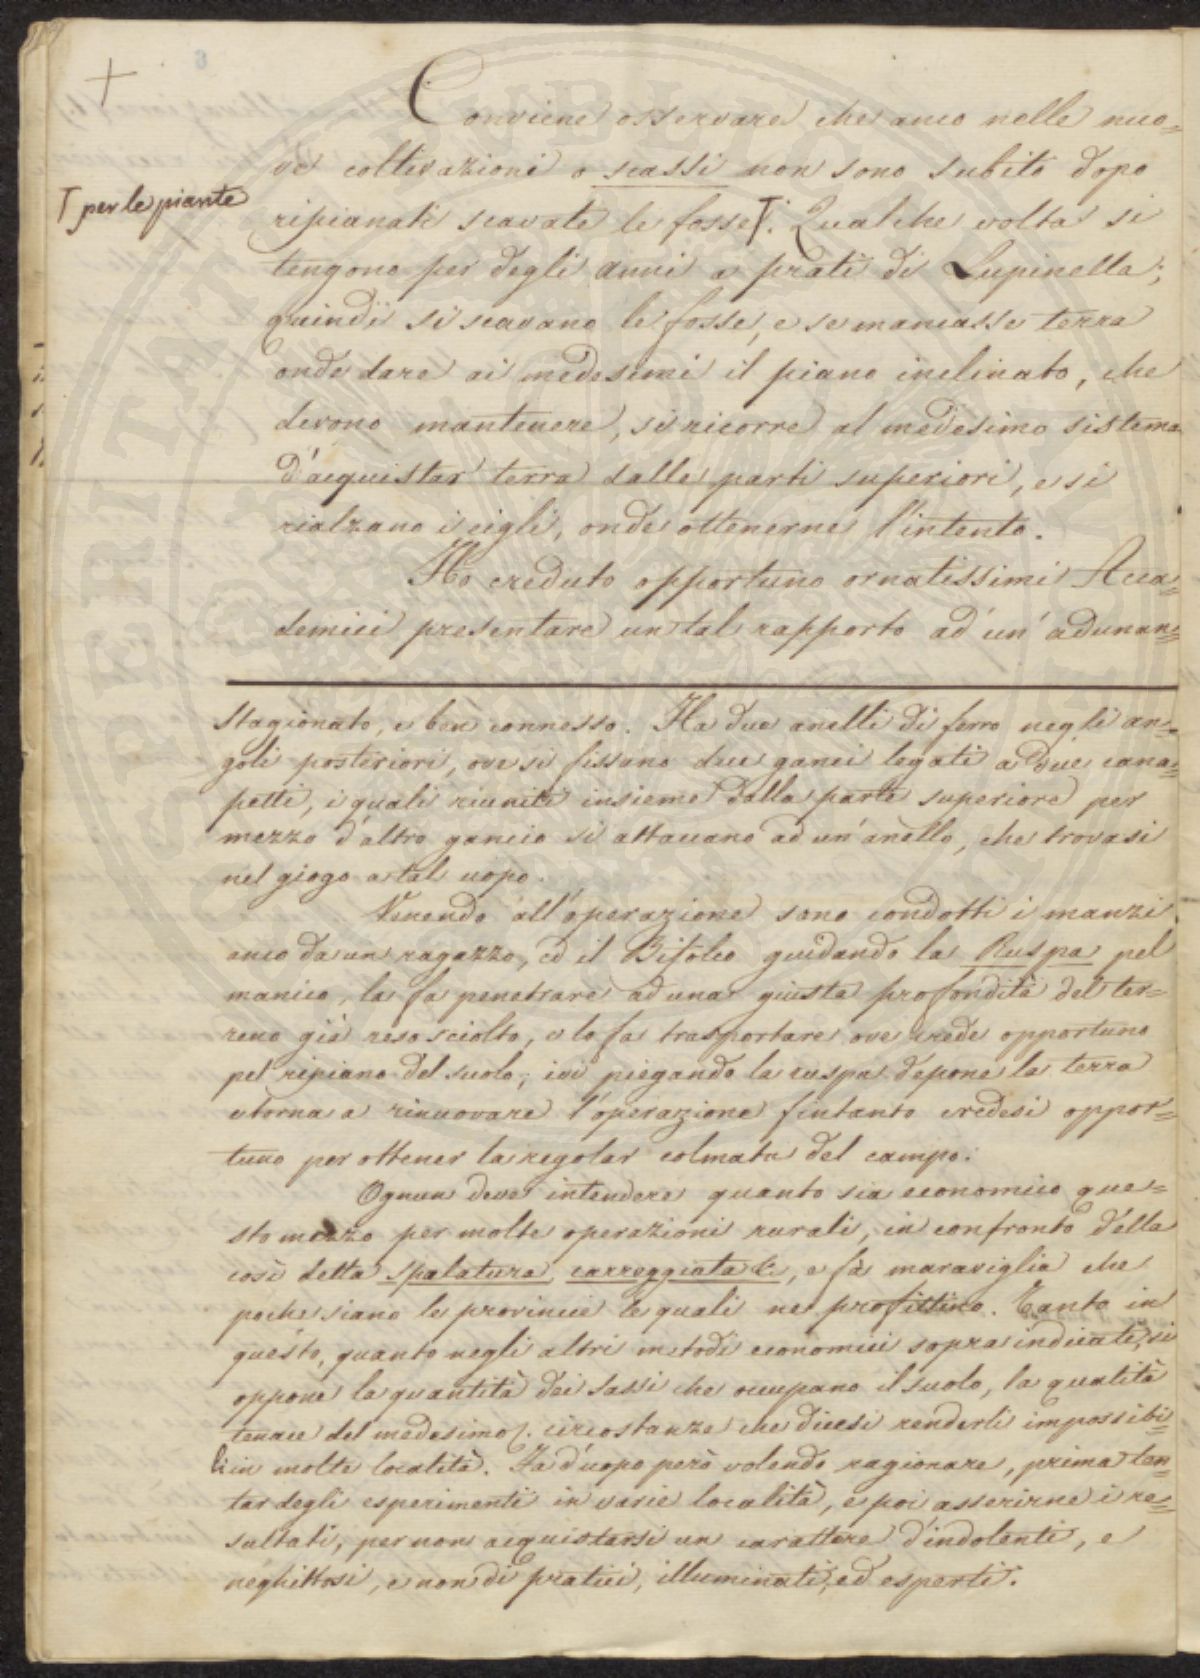 +
Conviene osservare che anco nelle nuo=
ve coltivazioni o scassi non sono subito dopo
Γ per le piante
ripianati scavate le fosse Γ. Qualche volta si
tengono per degli anni a prati di Lupinella;
quindi si scavano le fosse, e se mancasse terra
onde dare ai medesimi il piano inclinato, che
devono mantenere, si ricorre al medesimo sistema
d'acquistar terra dalle parti superiori, e si
rialzano i cigli, onde ottenerne l'intento.
Ho creduto opportuno ornatissimi Acca=
demici presentare un tal rapporto ad un' adunan=
stagionato, e ben connesso. Ha due anelli di ferro negli an=
goli posteriori, ove si fissano due ganci legati a due cana=
petti, i quali riuniti insieme dalla parte superiore per
mezzo d'altro gancio si attaccano ad un'anello, che trovasi
nel giogo a tal uopo.
Venendo all'operazione sono condotti i manzi
anco da un ragazzo, ed il Bifolco guidando la Ruspa pel
manico, la fa penetrare ad una giusta profondità del ter=
reno già reso sciolto, e lo fa trasportare ove crede opportuno
pel ripiano del suolo; ivi piegando la ruspa depone la terra
e torna a rinnovare l'operazione fintanto credesi oppor=
tuno per ottener la regolar colmata del campo.
Ognun deve intendere quanto sia economico que=
sto mezzo per molte operazioni rurali, in confronto della
così detta spalatura, carreggiata &c, e fà maraviglia che
poche siano le provincie le quali ne profittino. Tanto in
questo, quanto negli altri metodi economici sopra indicati, si
oppone la quantità dei sassi che occupano il suolo, la qualità
tenace del medesimo, circostanze che dicesi renderli impossibi=
li in molte località. Fa d'uopo però volendo ragionare, prima ten=
tar degli esperimenti in varie località, e poi asserirne i re=
sultati, per non acquistarsi un carattere d'indolenti, e
neghittosi, e non di pratici, illuminati, ed esperti.